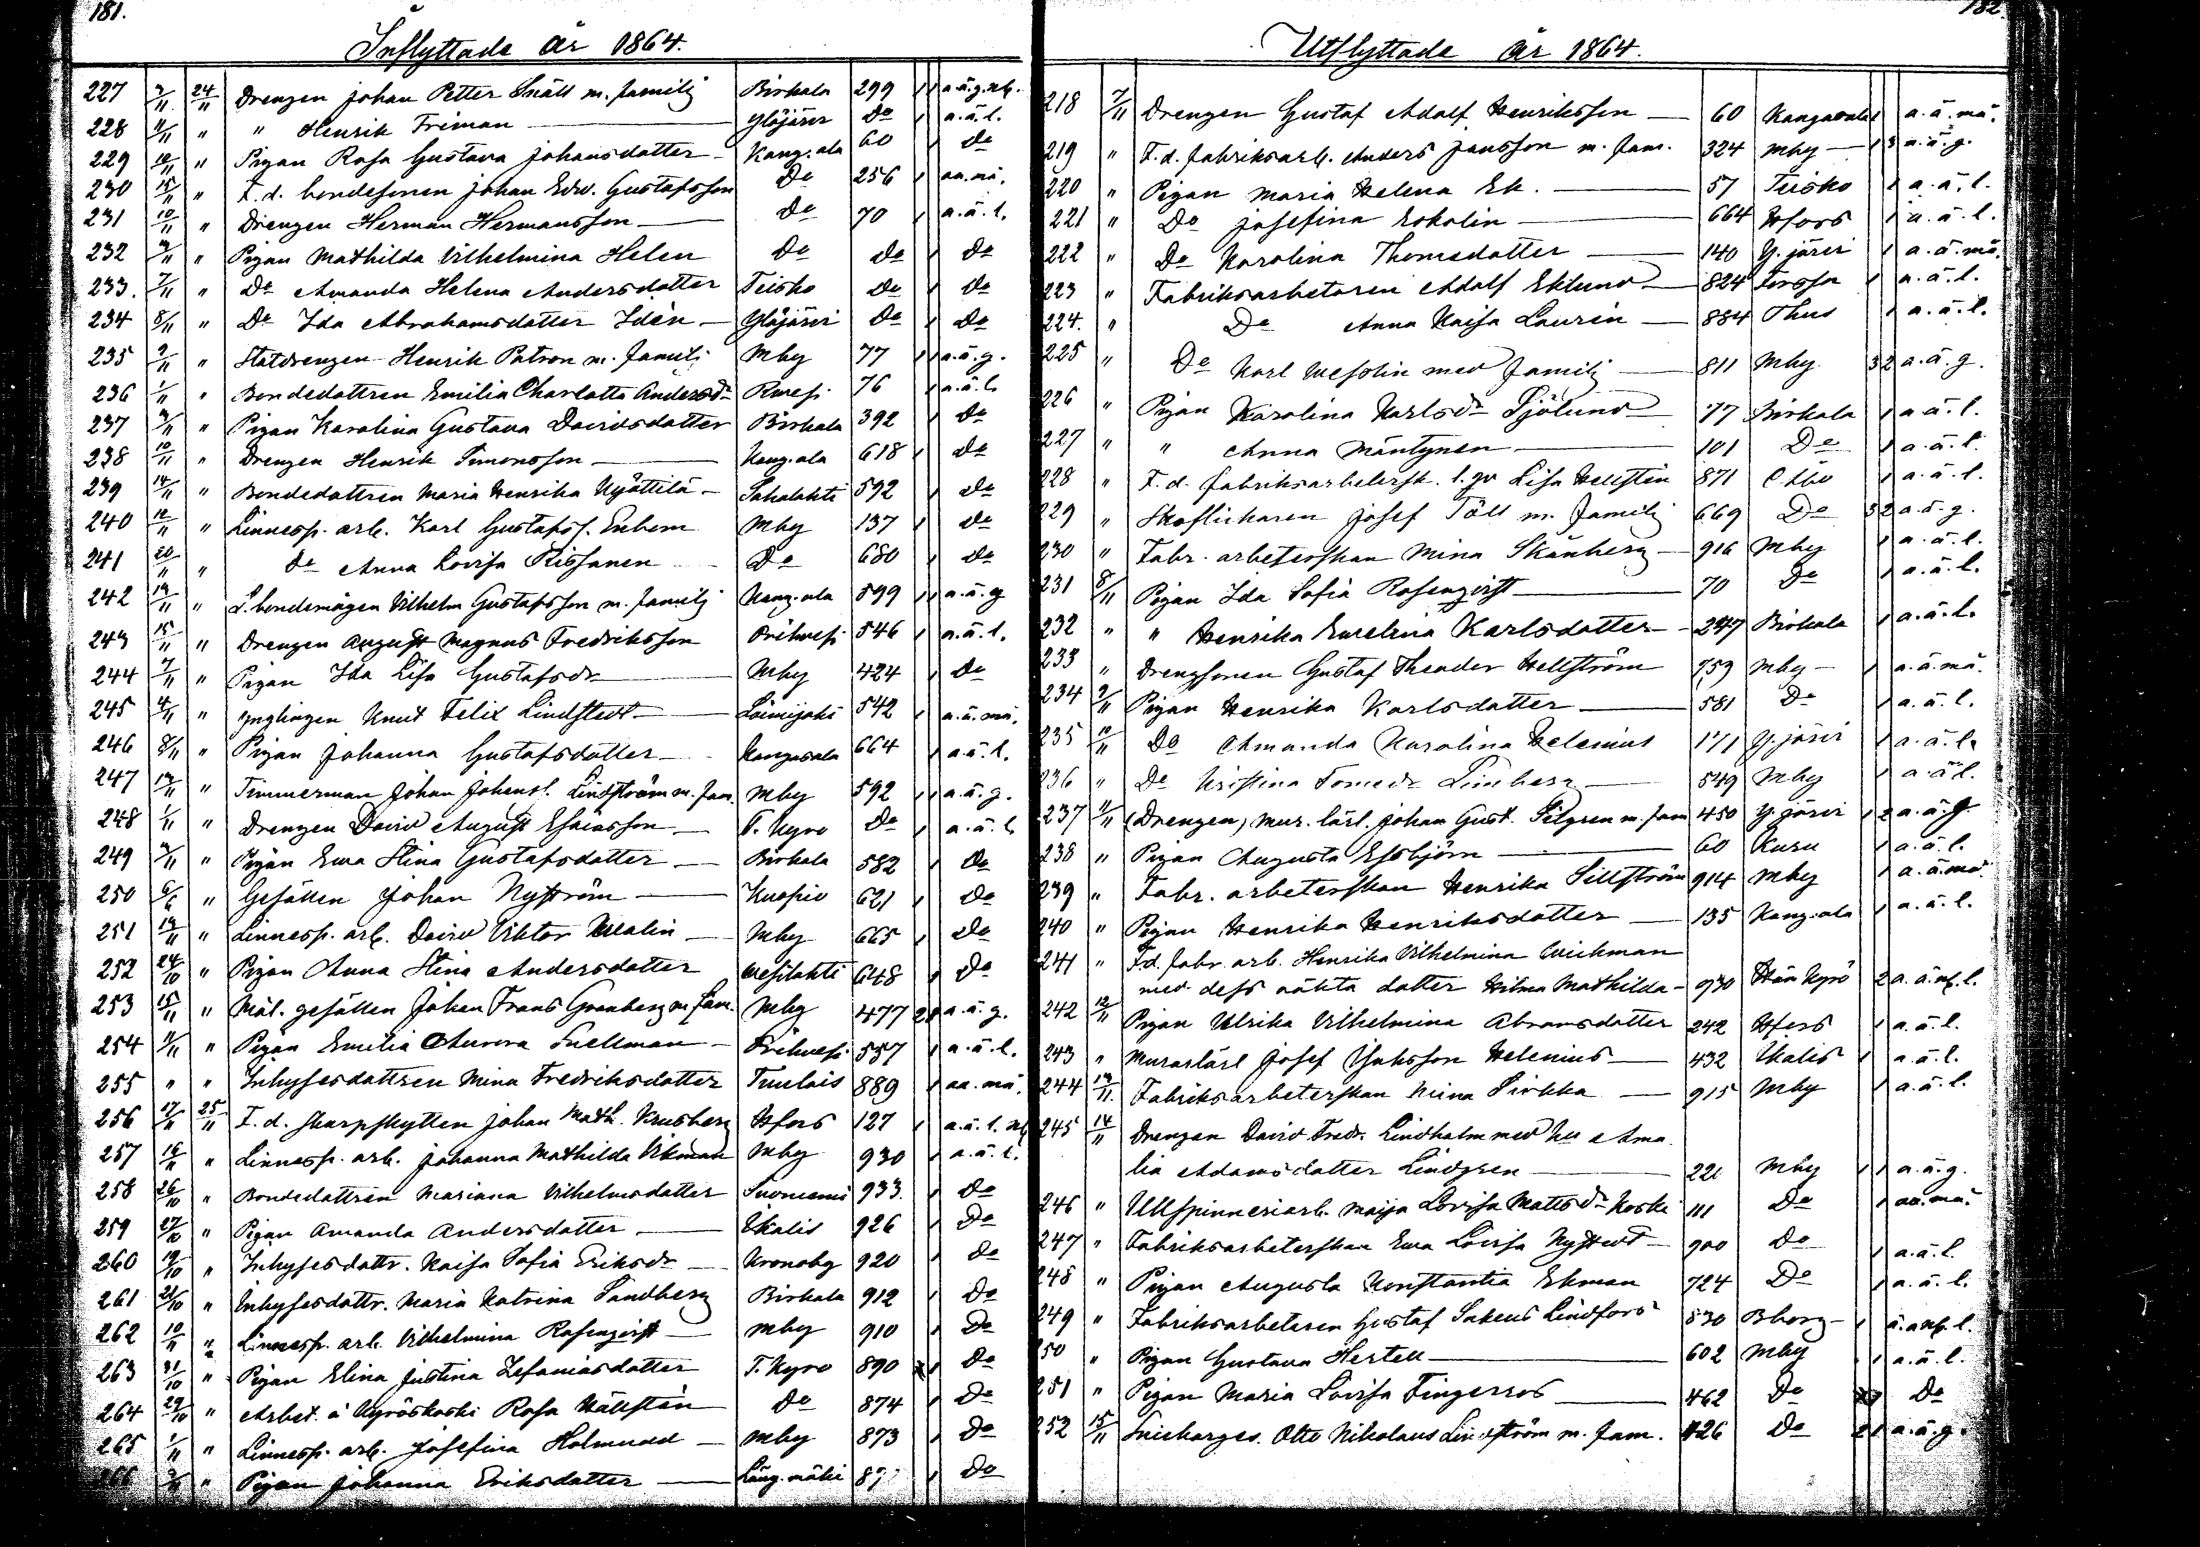 181.
Inflyttade År 1864.
227 2/11 24/11 Drengen Johan Petter Snäll m. familj Birkala 299 1 1 a.ä.g.
228 4/11 " " Henrik Friman — Ylöjärvi Do 1 a.ä.l.
229 10/11 " Pigan Rosa Gustava Johansdotter Kang.ala 60 1 do
230 15/11 " F.d. bondesonen Johan Edv. Gustafsson Do 256 1 aa.mä.
231 10/11 " Drengen Herman Hermansson — do 70 1 a.ä.l.
232 " Pigan Mathilda Vilhelmina Helen do do 1 do
233. 7/11 " Do Amanda Helena Andersdotter Teisko do 1 do
234 8/11 " Do Ida Abrahamsdotter Idèn — Ylöjärvi do 1 do
235 9/11 " Statdrengen Henrik Patron m. familj Mby 77 1 1 a.ä.g.
236 1/11 " Bondedottren Emilia Charlotta Andersdr Ruovesi 76 1 a.ä.l.
237 " Pigan Karolina Gustava Davidsdotter Birkala 392 1 do
238 10/11 " Drengen Henrik Simonsson — Kang.ala 618 1 do
239 14/11 " Bondedottren Maria Henrika Kyöttilä — Sahalahti 592 1 do
240 12/11 " Linnesp. arb. Karl Gustafss. Enbom Mby 137 1 do
241 20/11 " do Anna Lovisa Rissanen Do 680 1 do
242 14/11 " S. bondemågen Vilhelm Gustafsson m. familj Kang.ala 599 1 1 a.ä.g
243 15/11 " Drengen August Magnus Fredriksson Orihvesi 546 1 a.ä.l.
244 7/11 " Pigan Ida Lisa Gustafsdr — Mby 424 1 do
245 4/11 " Ynglingen Knut Felix Lindstedt — Loimijoki 542 1 a.ä.mä.
246 8/11 " Pigan Johanna Gustafsdotter — Kangasala 664 1 a.ä.l.
247 14/11 " Timmerman Johan Johanss. Lindström m. fam. Mby 592 1 1 a.ä.g.
248 1/11 " Drengen David August Esaiasson — T. Kyro Do 1 a.ä.l.
249 " Pigan Ewa Stina Gustafsdotter — Birkala 582 1 do
250 6/6 " Gesällen Johan Nyström — Kuopio 621 1 do
251 14/11 " Linnesp. arb. David Viktor Malin — Mby 665 1 do
252 24/10 " Pigan Anna Stina Andersdotter Vesilahti 648 1 do
253 15/11 " Mål. gesällen Johan Frans Granberg m. fam. Mby 477 2 1 a.ä.g.
254 11/11 " Pigan Emilia Aurora Snellman — Orihvesi 587 1 a.ä.l.
255 " " Inhysesdottren Mina Fredriksdotter Tuulois 889 1 aa.mä.
256 17/11 25/11 F.d. skarpskytten Johan Math. Krusberg Hfors 127 1 a.ä.l.
257 16/11 " Linnesp. arb. Johanna Mathilda Vikman Mby 930 1 a.ä.l.
258 26/10 " Bondedottren Mariana Vilhelmsdotter Suoniemi 933. 1 do
259 27/10 " Pigan Amanda Andersdotter — Ikalis 926 1 do
260 19/10 " Inhysesdottr. Kaisa Sofia Eriksdr — Kronoby 920 1 do
261 21/10 " Inhysesdottr. Maria Katrina Sandberg Birkala 912 1 Do
262 10/11 " Linnesp. arb. Vilhelmina Rosenqvist — Mby 910 1 Do
263 31/10 " Pigan Elina Justina Zefaniasdotter T. Kyro 890 1 Do
264 29/10 " Arbet. å Kyröskoski Rosa Hällstén do 874 1 Do
265 1/11 " Linnesp. arb. Josefina Holmudd — Mby 873 1 Do
266 " Pigan Johanna Eriksdotter — Läng.mäki 87 1 Do
182.
Utflyttade år 1864.
218 7/11 Drengen Gustaf Adolf Henriksson — 60 Kangasala 1 a.ä.mä.
219 " F.d. fabriksarb. Anders Jansson m. fam. 324 Mby — 1 3 a.ä.g.
220 " Pigan Maria Helena Ek. — 57 Teisko 1 a.ä.l.
221 " Do Josefina Eskolin — 664 Hfors 1 a.ä.l.
222 " Do Karolina Thomsdotter — 140 Y.järvi 1 a.ä.mä.
223 " Fabriksarbetaren Adolf Eklund — 824 Forssa 1 a.ä.l.
224. " Do Anna Kaisa Laurén — 884 Thus 1 a.ä.l.
225 " Do Karl Wesslin med familj — 811 Mby 3 2 a.ä.g.
226 " Pigan Karolina Karlsdr Sjölund — 77 Birkala 1 a.ä.l.
227 " " Anna Mäntynen — 101 Do 1 a.ä.l.
228 " F.d. fabriksarbetersk. l. gr Lisa Hellstén 871 Åbo 1 a.ä.l.
229 " Skoflickaren Josef Töll m. familj 669 Do 3 2 a.ä.g.
230 " Fabr. arbeterskan Mina Skånberg — 916 Mby 1 a.ä.l.
231 8/11 Pigan Ida Sofia Rosenqvist — 70 Do 1 a.ä.l.
232 " " Henrika Evelina Karlsdotter — 247 Birkala 1 a.ä.l.
233 " Drengsonen Gustaf Theodor Hellström 759 Mby — 1 a.ä.mä.
234 9/11 Pigan Henrika Karlsdotter — 581 Do 1 a.ä.l.
235 10/11 Do Amanda Karolina Helenius 171 Y.järvi 1 a.ä.l.
236 " Do Kristina Tomsdr Limberg — 549 Mby 1 a.ä.l.
237 11/11 (Drengen) mur. lärl. Johan Gust. Silgren m. fam 450 Y.järvi 1 2 a.ä.g.
238 " Pigan Augusta Essbjörn — 60 Kuru 1 a.ä.l.
239 " Fabr. arbeterskan Henrika Sillström 914 Mby 1 a.ä.mä.
240 " Pigan Henrika Henriksdotter — 135 Kang.ala 1 a.ä.l.
241 " F.d. fabr. arb. Henrika Vilhelmina Wickman
med dess oäkta dotter Hilma Mathilda — 930 Kyrö 2 a.ä.l.
242 12/11 Pigan Ulrika Vilhelmina Abramsdotter 242 Hfors 1 a.ä.l.
243 " Murarelärl Josef Isaksson Helenius — 432 Ikalis 1 a.ä.l.
244 14/11 Fabriksarbeterskan Mina Sirkka — 915 Mby 1 a.ä.l.
245 14/11 Drengen David Fredr. Lindholm med hu Ama
lia Adamsdotter Lindgren — 221 Mby 1 1 a.ä.g.
246 " Ullspinneriarb. Maija Lovisa Mattsdr Koski 111 Do 1 aa.mä.
247 " Fabriksarbeterskan Ewa Lovisa Nystedt — 900 Do 1 a.ä.l.
248 " Pigan Augusta Konstantia Ekman 724 Do 1 a.ä.l.
249 " Fabriksarbetaren Gustaf Sakeus Lindfors 830 Bborg — 1 l.
250 " Pigan Gustava Hertell — 602 Mby 1 a.ä.l.
251 " Pigan Maria Lovisa Fingerroos — 462 Do Do
252 15/11 Snickarges. Otto Nikolaus Lindström m. fam. 426 Do 2 1 a.ä.g.